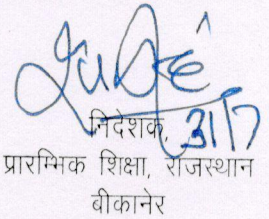 निदेशक,
31/7
प्रारम्भिक शिक्षा, राजस्थान
बीकानेर